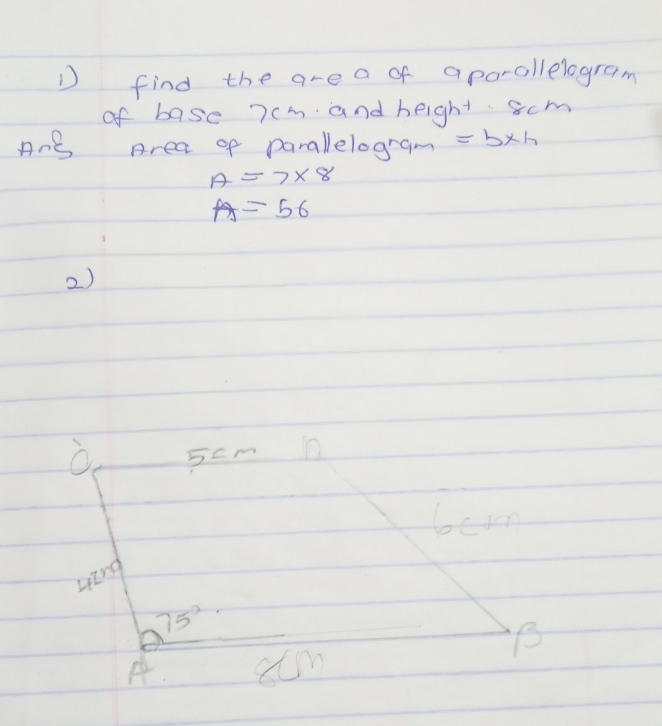 1) find the area of a parallelogram
of base 7cm. and height 8cm
Ans Area of parallelogram = b×h
A = 7×8
A = 56
2)
5cm D
6cm
4cm
75°
A 8cm B